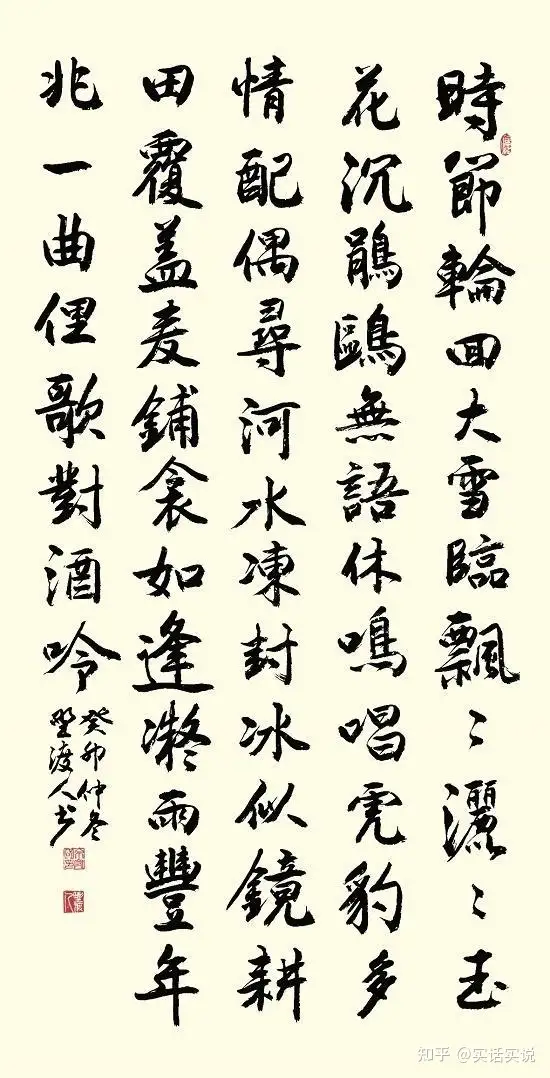 時節輪回大雪臨飄〻灑〻玉
花沉鵑鷗無語休鳴唱虎豹多
情配偶尋河水凍封冰似鏡耕
田覆蓋麦鋪衾如逢凝雨豐年
兆一曲俚歌對酒吟
癸卯仲冬
埜渡人书
知乎 @实话实说